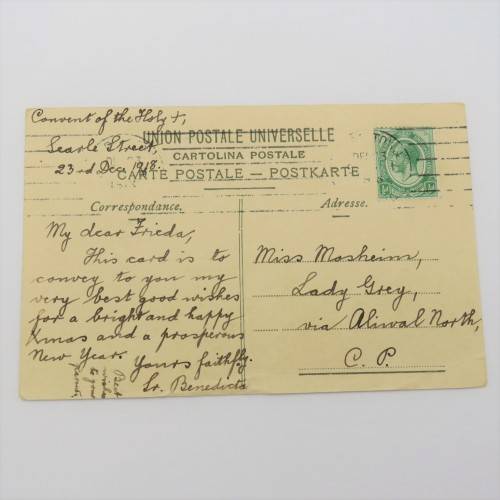 Convent of the Holy +,
Searle Street,
23rd Dec. 1918.
UNION POSTALE UNIVERSELLE
CARTOLINA POSTALE
CARTE POSTALE — POSTKARTE
Correspondance.
Adresse.
My dear Frieda,
This card is to
convey to you my
very best good wishes
for a bright and happy
Xmas and a prosperous
New Year.
Yours faithfly.
Sr. Benedicta
Best
wishes
to your
Miss Mosheim,
Lady Grey,
via Aliwal North,
C. P.